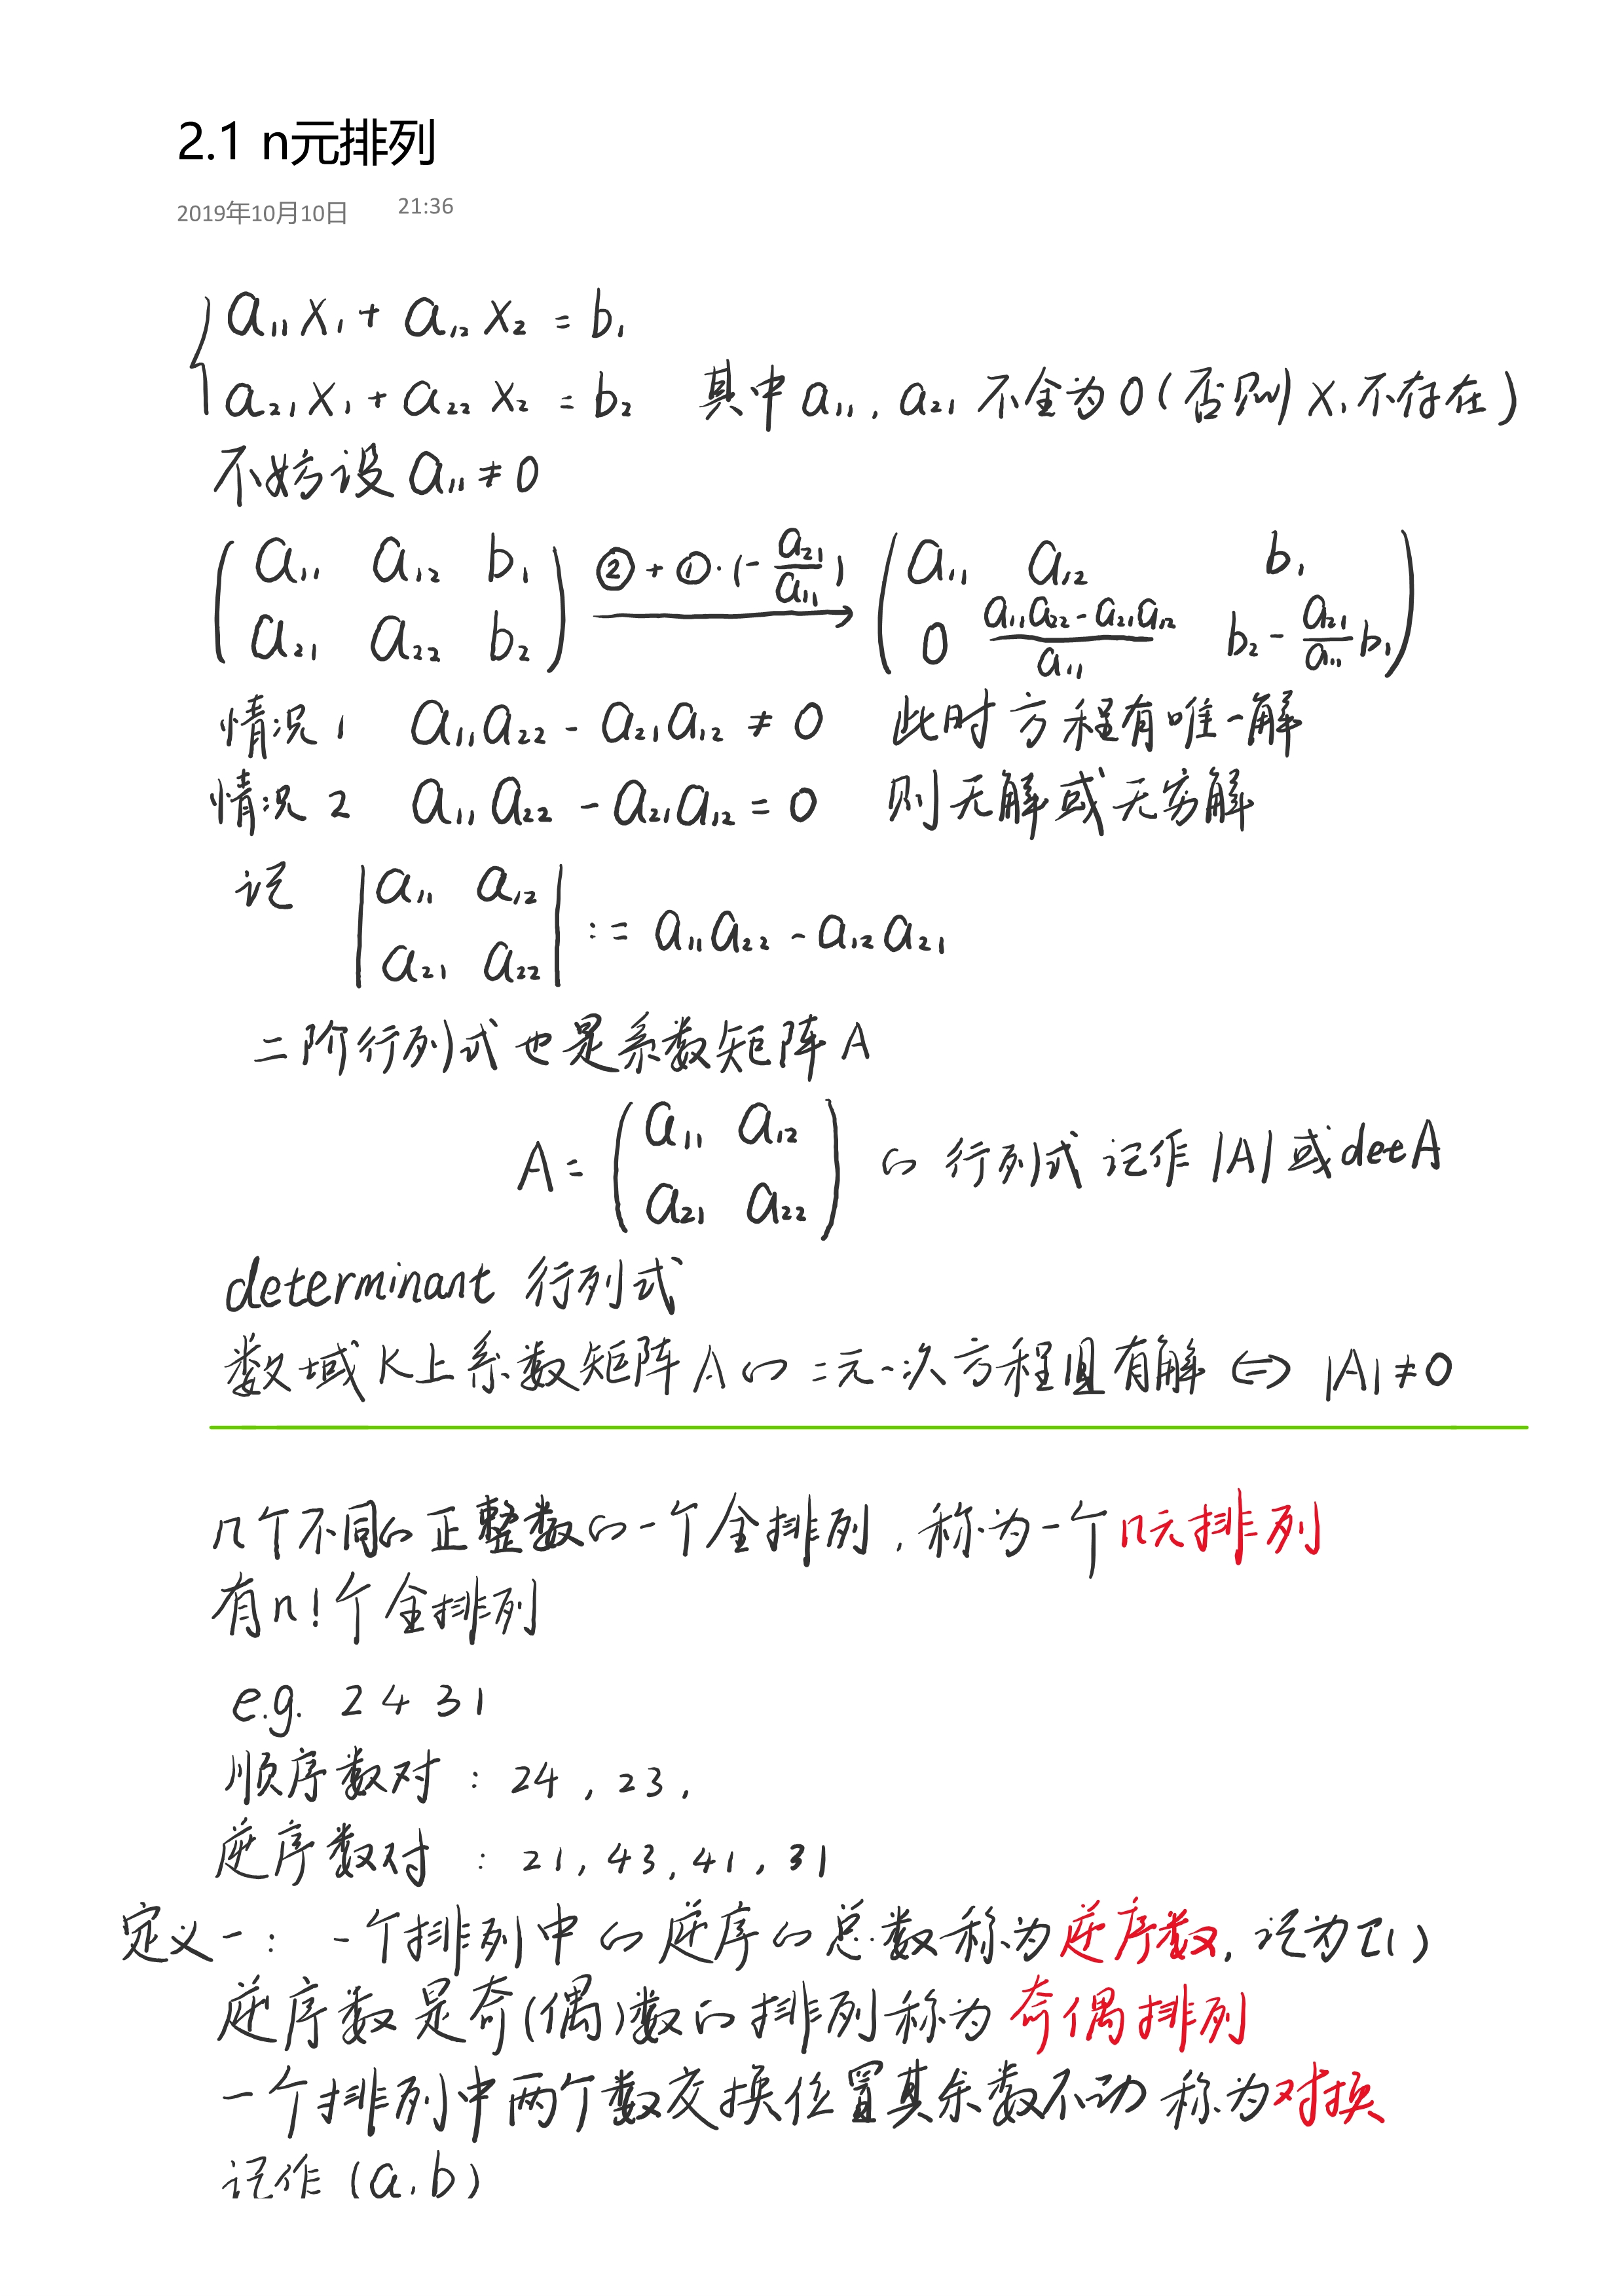 2.1 n元排列
2019年10月10日 21:36
a₁₁x₁ + a₁₂x₂ = b₁
a₂₁x₁ + a₂₂x₂ = b₂ 其中a₁₁, a₂₁不全为0(否则x₁不存在)
不妨设a₁₁≠0
(a₁₁ a₁₂ b₁; a₂₁ a₂₂ b₂) ②+①·(-a₂₁/a₁₁) → (a₁₁ a₁₂ b₁; 0 (a₁₁a₂₂-a₂₁a₁₂)/a₁₁ b₂-(a₂₁/a₁₁)b₁)
情况1 a₁₁a₂₂ - a₂₁a₁₂ ≠ 0 此时方程有唯一解
情况2 a₁₁a₂₂ - a₂₁a₁₂ = 0 则无解或无穷解
记 |a₁₁ a₁₂; a₂₁ a₂₂| := a₁₁a₂₂ - a₁₂a₂₁
二阶行列式也是系数矩阵A
A = (a₁₁ a₁₂; a₂₁ a₂₂) 的行列式 记作|A|或detA
determinant 行列式
数域K上系数矩阵A的二元一次方程组有解 ⇔ |A|≠0
n个不同的正整数的一个全排列,称为一个n元排列
有n!个全排列
e.g. 2431
顺序数对:24,23,
逆序数对:21,43,41,31
定义一:一个排列中的逆序的总数称为逆序数,记为τ( )
逆序数是奇(偶)数的排列称为奇偶排列
一个排列中两个数交换位置其余数不动称为对换
记作(a,b)